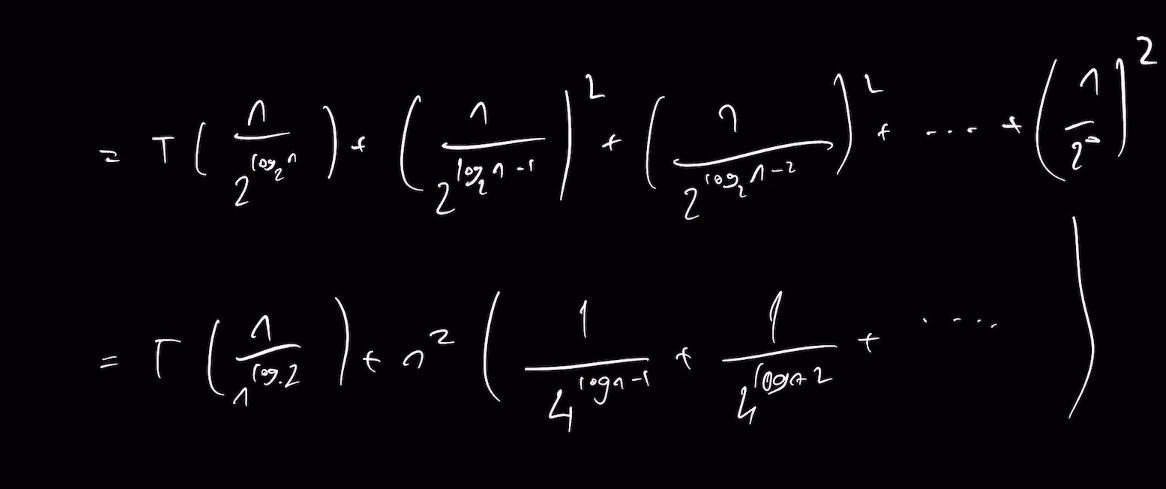 = T(n/2^(log_2 n)) + (n/2^(log_2 n-1))^2 + (n/2^(log_2 n-2))^2 + .... + (n/2^0)^2
= T(n/n^(log.2)) + n^2 (1/4^(log n-1) + 1/4^(log n-2) + ....)